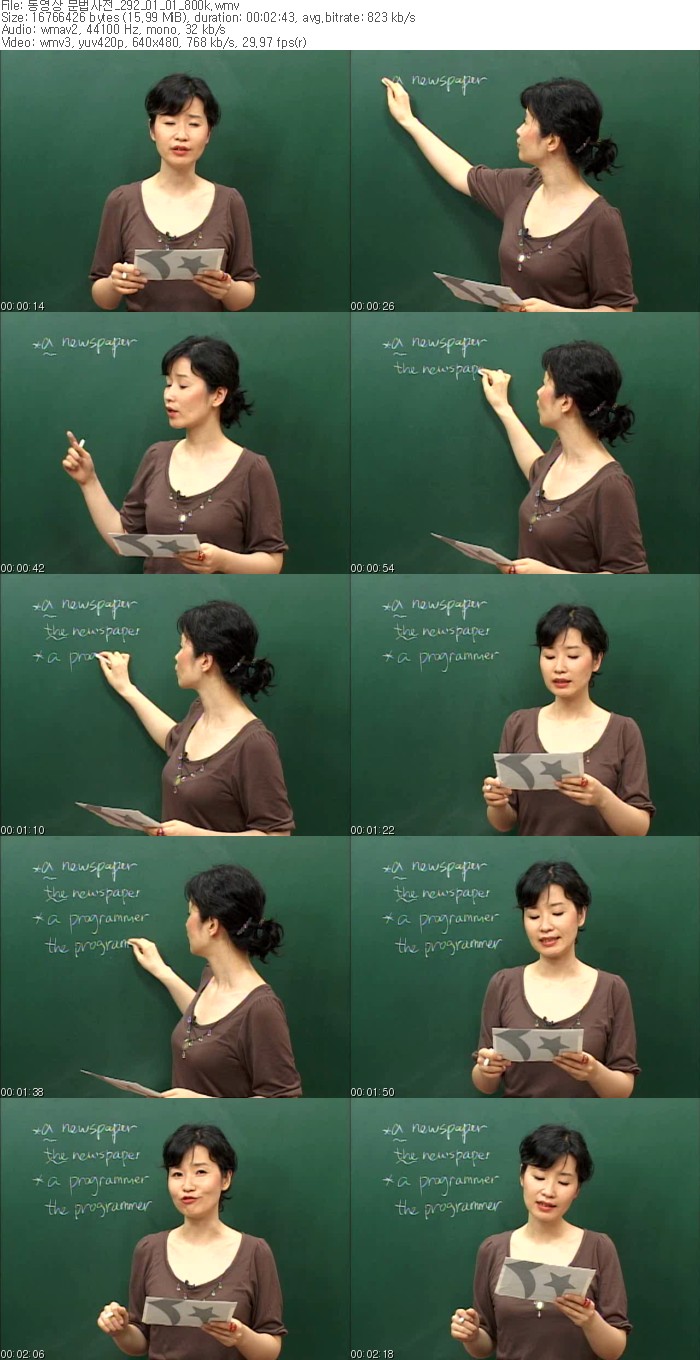 File: 동영상 문법사전_292_01_01_800k.wmv
Size: 16766426 bytes (15.99 MiB), duration: 00:02:43, avg.bitrate: 823 kb/s
Audio: wmav2, 44100 Hz, mono, 32 kb/s
Video: wmv3, yuv420p, 640x480, 768 kb/s, 29.97 fps(r)
00:00:14
a newspaper
00:00:26
*a newspaper
00:00:42
*a newspaper
the newspape
00:00:54
*a newspaper
the newspaper
*a prog
00:01:10
*a newspaper
the newspaper
*a programmer
00:01:22
*a newspaper
the newspaper
*a programmer
the program
00:01:38
*a newspaper
the newspaper
*a programmer
the programmer
00:01:50
*a newspaper
the newspaper
*a programmer
the programmer
00:02:06
*a newspaper
the newspaper
*a programmer
the programmer
00:02:18